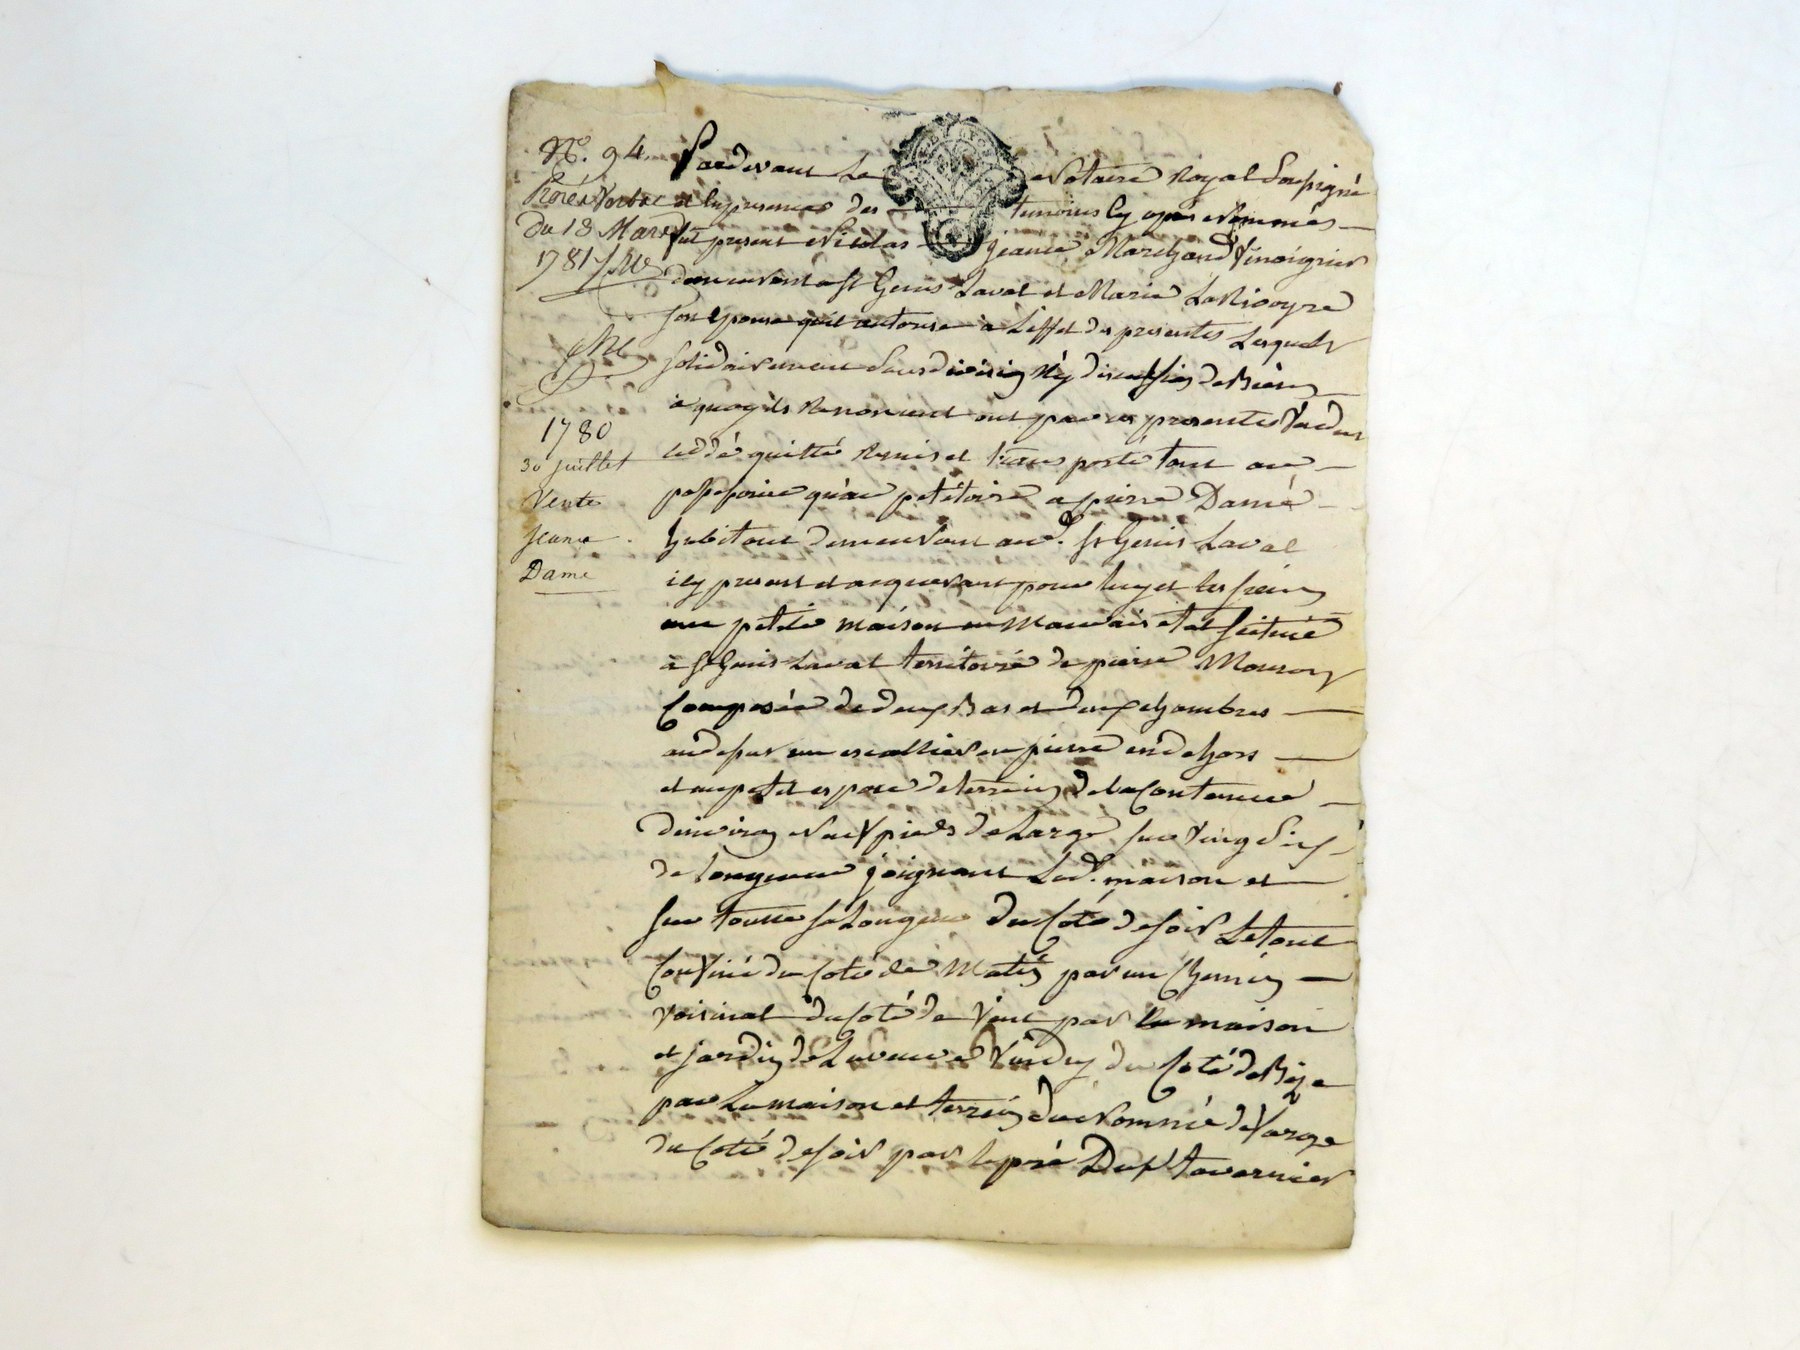 N°. 94
Procés Verbal
du 18 Mars
1781
1780
30 juillet
Vente
Jeance
Damé
Pardevant Le Notaire Royal Soussigné
et En presence des temoins Cy apres Nommés
fut present Nicolas Jeance Marchand Vinaigrier
demeurant a St Genis Laval et Marie LaRivoyre
son Epouse qu'il autorise a L'effet des presentes Lesquels
solidairement sans division Ny discussion de Biens
a quoy ils Renoncent ont par ces presentes Vendu
ceddé quitté Remis et transporté tant au
possessoire qu'au petitoire a pierre Damé
habitant demeurant aud. St Genis Laval
icy present et acquerant pour luy et les siens
une petite maison en Mauvais etat scituée
a St Genis Laval territoire de pierre
Composée de deux Bas et deux chambres
au dessus un escallier en pierre en dehors
et un petit espace de terrein de la Contenue
d'environ Neuf pieds de Large sur Vingt Six
de longueur joignant Lad. maison et
sur toutte sa Longueur du Coté de soir Le tout
Confiné du Coté de Matin par un Chemin
voisinal du Coté de Vent par la maison
et jardin de La veuve du Coté de Bize
par La maison et terrein du Nommé deVarge
du Coté de soir par le pré Du Sr tavernier